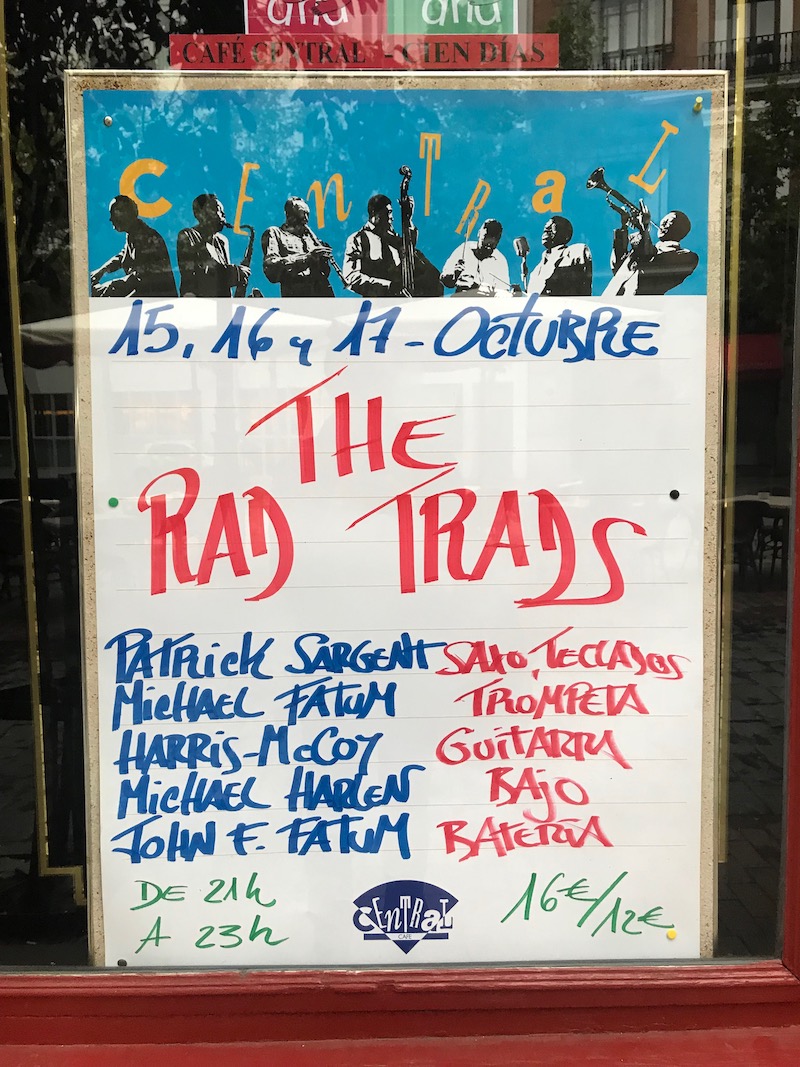 and and
CAFÉ CENTRAL - CIEN DÍAS
CENTRAL
15, 16 y 17 - OCTUBRE
THE
RAD TRADS
PATRICK SARGENT SAXO, TECLADOS
MICHAEL FATUM TROMPETA
HARRIS-McCOY GUITARRA
MICHAEL HARLEN BAJO
JOHN F. FATUM BATERÍA
DE 21h
A 23h
CENTRAL
CAFE
16€/12€